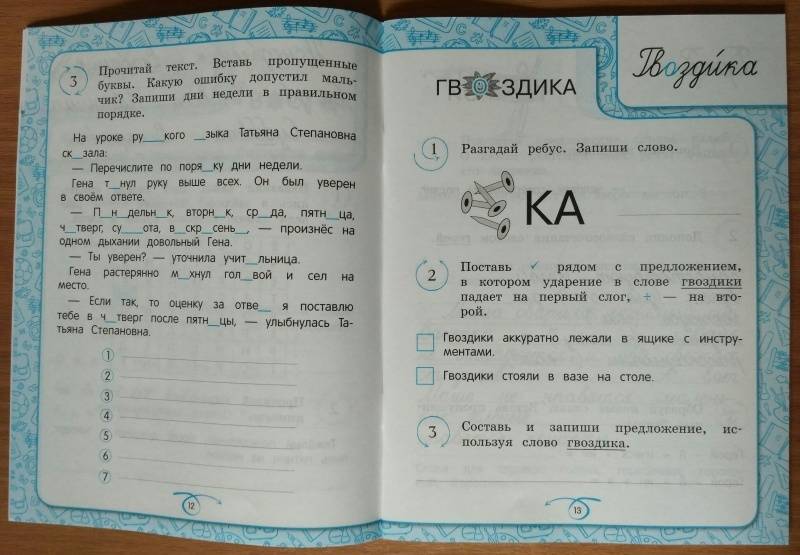 3
Прочитай текст. Вставь пропущенные
буквы. Какую ошибку допустил маль-
чик? Запиши дни недели в правильном
порядке.
На уроке ру__кого _зыка Татьяна Степановна
ск_зала:
— Перечислите по поря_ку дни недели.
Гена т_нул руку выше всех. Он был уверен
в своём ответе.
— П_н_дельн_к, вторн_к, ср_да, пятн_ца,
ч_тверг, су__ота, в_скр_сень_, — произнёс на
одном дыхании довольный Гена.
— Ты уверен? — уточнила учит_льница.
Гена растерянно м_хнул гол_вой и сел на
место.
— Если так, то оценку за отве_ я поставлю
тебе в ч_тверг после пятн_цы, — улыбнулась Та-
тьяна Степановна.
1
2
3
4
5
6
7
12
Гвозди́ка
ГВОЗДИКА
1
Разгадай ребус. Запиши слово.
КА
2
Поставь ✓ рядом с предложением,
в котором ударение в слове гвоздики
падает на первый слог, + — на вто-
рой.
Гвоздики аккуратно лежали в ящике с инстру-
ментами.
Гвоздики стояли в вазе на столе.
3
Составь и запиши предложение, ис-
пользуя слово гвоздика.
13